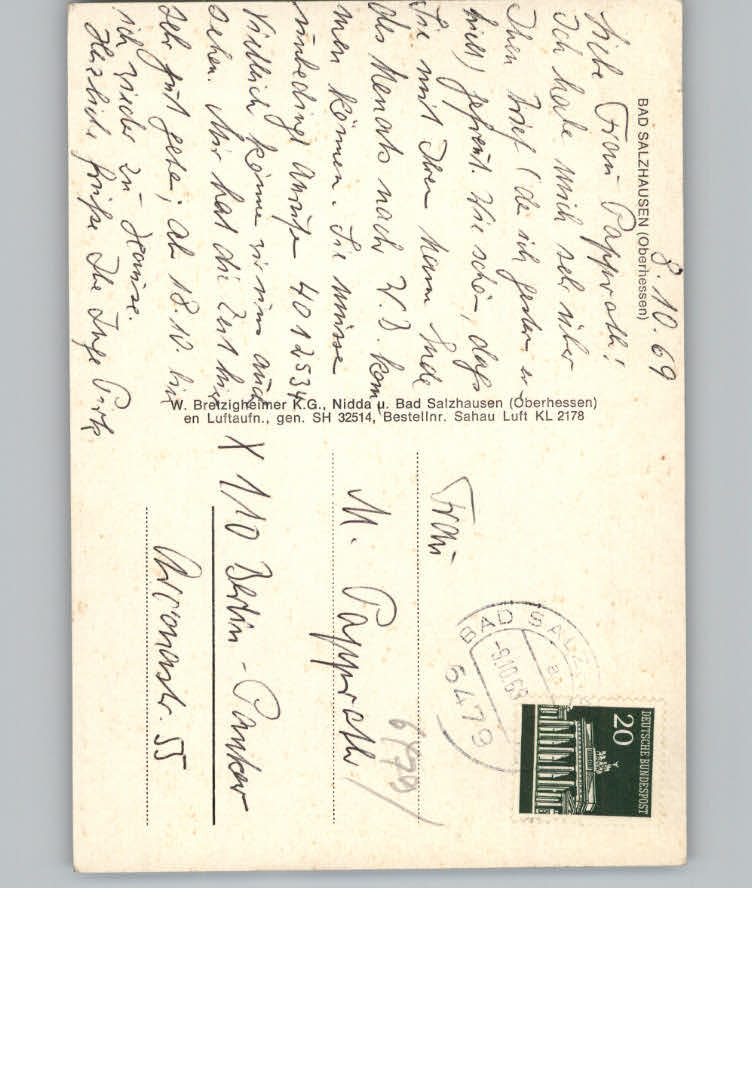 BAD SALZHAUSEN (Oberhessen)
8.10.69
Liebe Frau Papproth!
Ich habe mich sehr über
Ihren Brief (den ich gestern
erhielt) gefreut. Wie schön, daß
Sie mit Ihrem Mann Ende
des Monats nach W.B. kom
men können. Sie müssen
unbedingt anrufen 4012534
Vielleicht können wir uns auch
sehen. Mir hat die Zeit hier
sehr gut getan; ab 18.10. bin
ich wieder zu Hause.
Herzliche Grüße Ihre Inge
W. Bretzigheimer K.G., Nidda u. Bad Salzhausen (Oberhessen)
en Luftaufn., gen. SH 32514, Bestellnr. Sahau Luft KL 2178
Frau
M. Papproth
X 110 Berlin - Pankow
55
BAD SALZ
-9.10.69
6479
DEUTSCHE BUNDESPOST
20